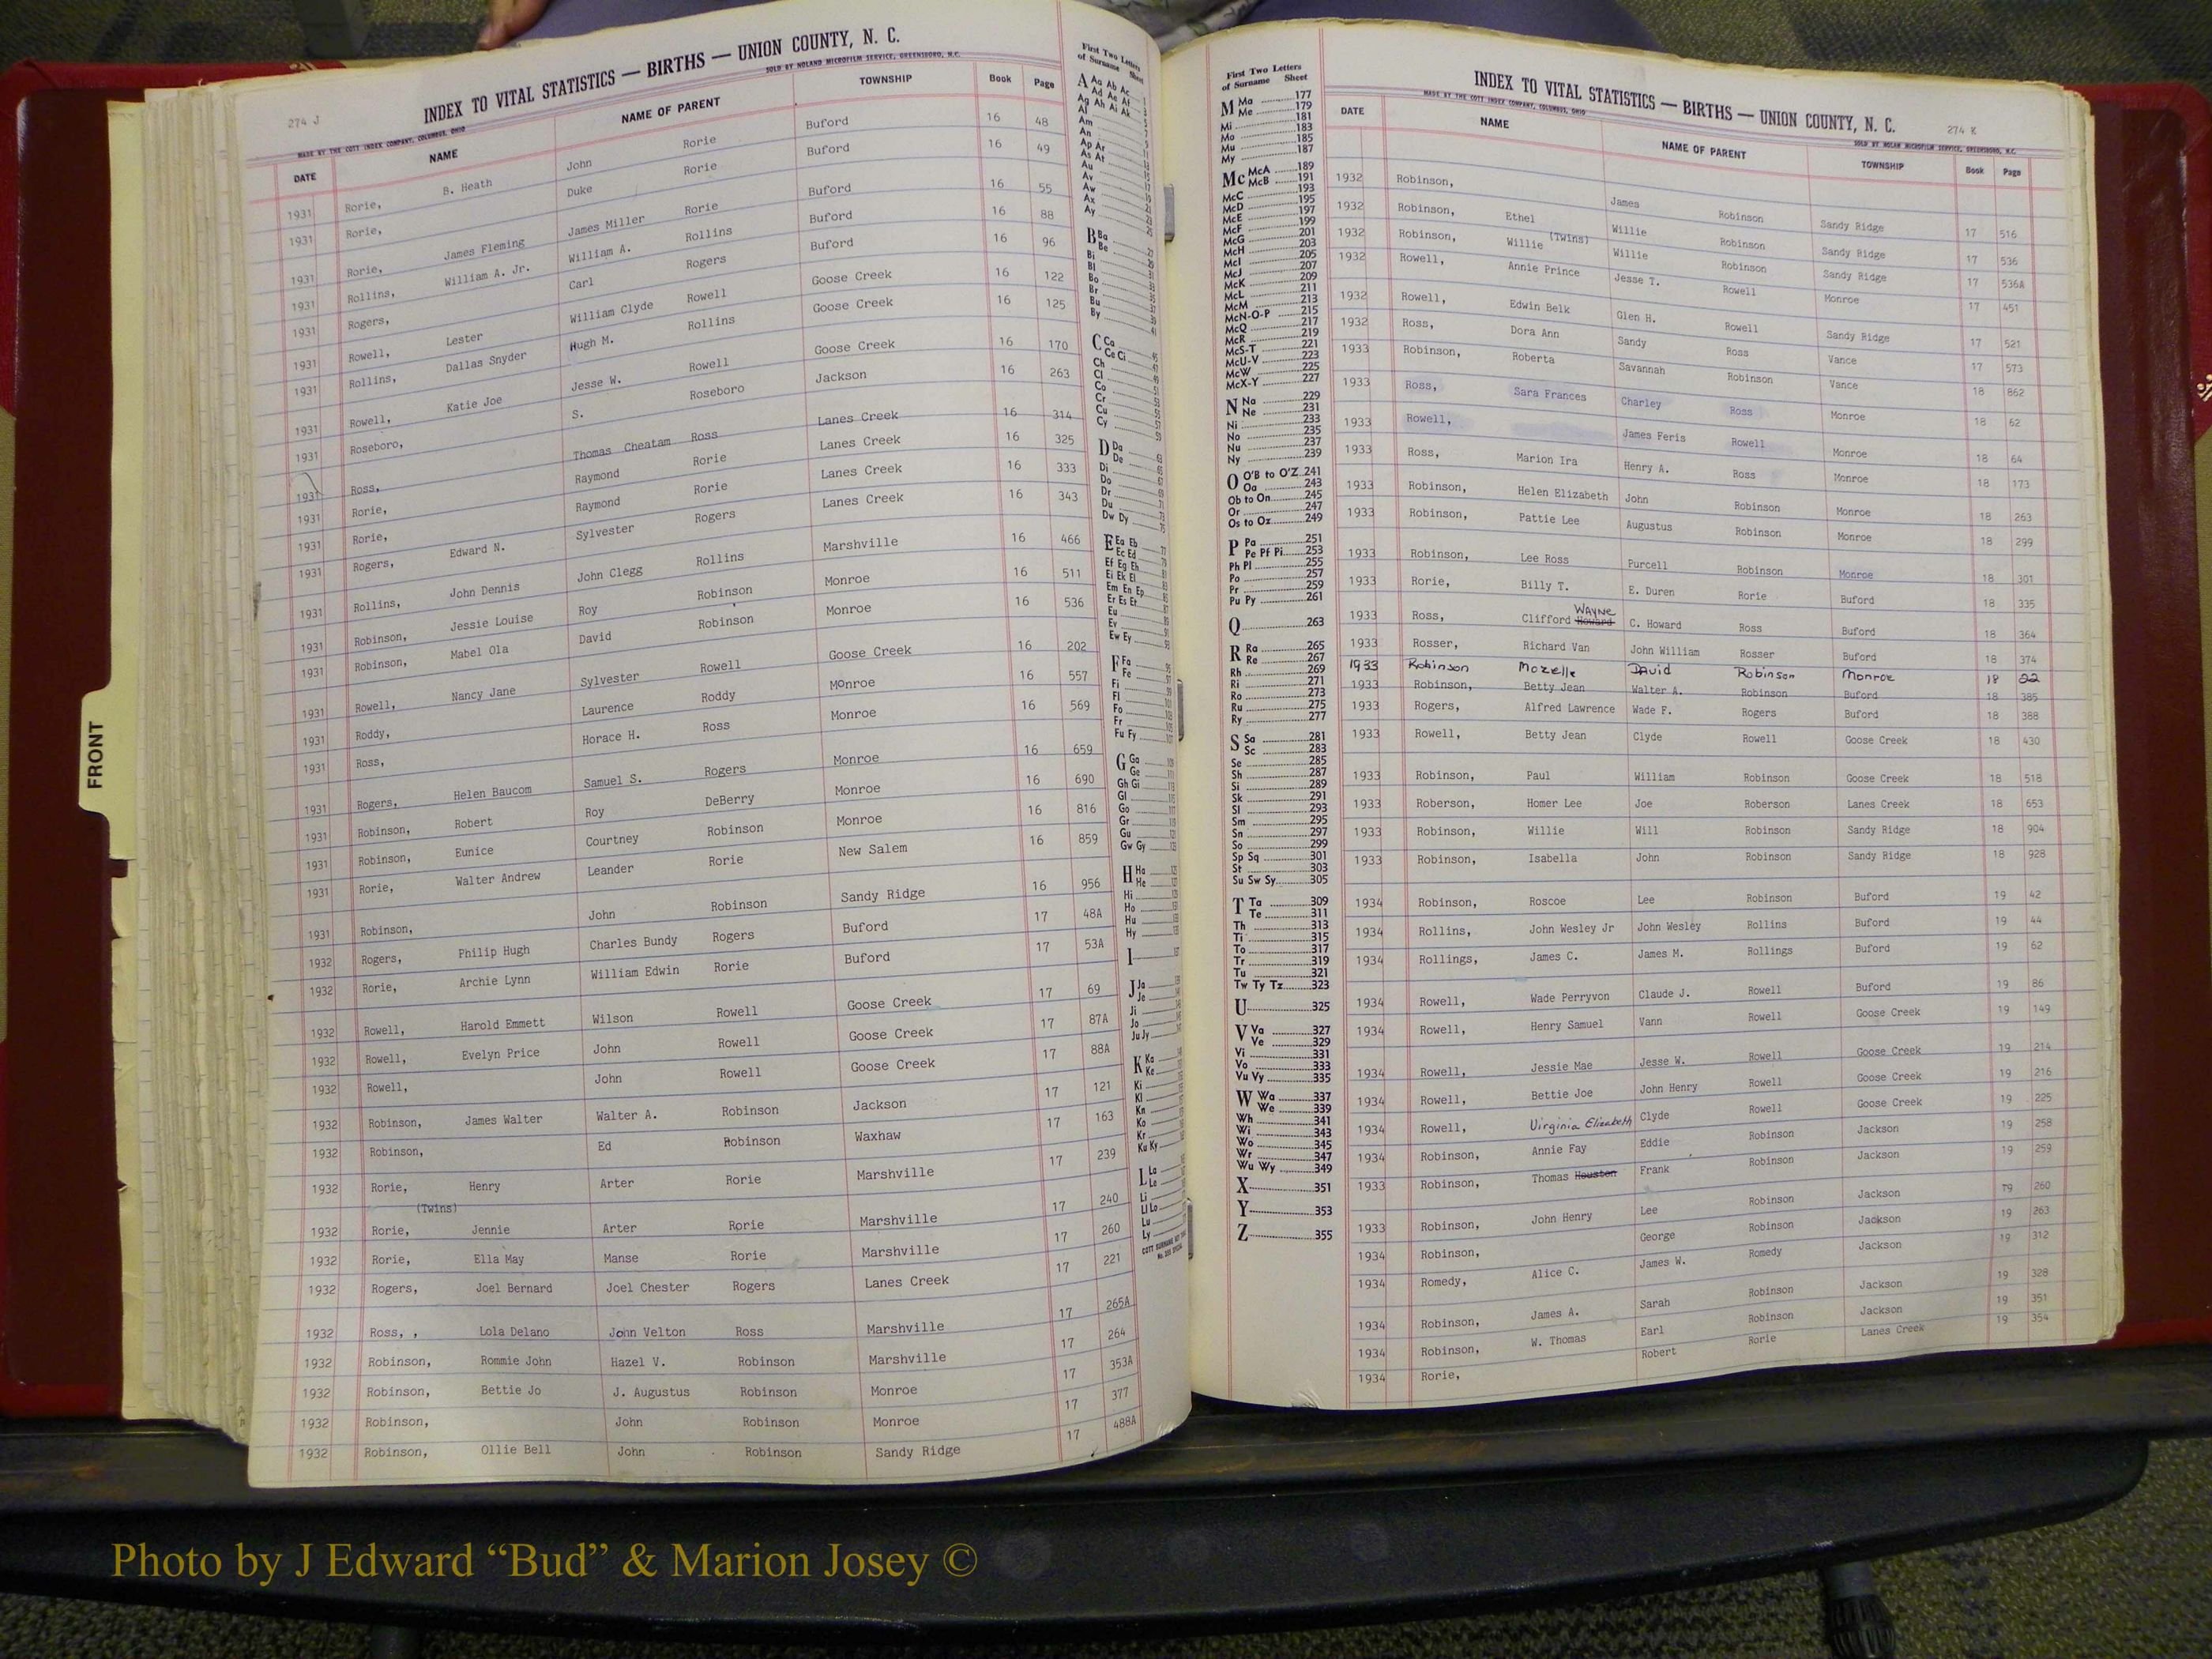 274 J
INDEX TO VITAL STATISTICS — BIRTHS — UNION COUNTY, N. C.
MADE BY THE COTT INDEX COMPANY, COLUMBUS, OHIO SOLD BY NOLAND MICROFILM SERVICE, GREENSBORO, N.C.
DATE NAME NAME OF PARENT TOWNSHIP Book Page
1931 Rorie, B. Heath John Rorie Buford 16 48
1931 Rorie, Duke Rorie Buford 16 49
1931 Rorie, James Fleming James Miller Rorie Buford 16 55
1931 Rollins, William A. Jr. William A. Rollins Buford 16 88
1931 Rogers, Carl Rogers Buford 16 96
1931 Rowell, Lester William Clyde Rowell Goose Creek 16 122
1931 Rollins, Dallas Snyder Hugh M. Rollins Goose Creek 16 125
1931 Rowell, Katie Joe Jesse W. Rowell Goose Creek 16 170
1931 Roseboro, S. Roseboro Jackson 16 263
1931 Ross, Thomas Cheatam Ross Lanes Creek 16 314
1931 Rorie, Raymond Rorie Lanes Creek 16 325
1931 Rorie, Raymond Rorie Lanes Creek 16 333
1931 Rogers, Edward N. Sylvester Rogers Lanes Creek 16 343
1931 Rollins, John Dennis John Clegg Rollins Marshville 16 466
1931 Robinson, Jessie Louise Roy Robinson Monroe 16 511
1931 Robinson, Mabel Ola David Robinson Monroe 16 536
1931 Rowell, Nancy Jane Sylvester Rowell Goose Creek 16 202
1931 Roddy, Laurence Roddy Monroe 16 557
1931 Ross, Horace H. Ross Monroe 16 569
1931 Rogers, Helen Baucom Samuel S. Rogers Monroe 16 659
1931 Robinson, Robert Roy DeBerry Monroe 16 690
1931 Robinson, Eunice Courtney Robinson Monroe 16 816
1931 Rorie, Walter Andrew Leander Rorie New Salem 16 859
1931 Robinson, John Robinson Sandy Ridge 16 956
1932 Rogers, Philip Hugh Charles Bundy Rogers Buford 17 48A
1932 Rorie, Archie Lynn William Edwin Rorie Buford 17 53A
1932 Rowell, Harold Emmett Wilson Rowell Goose Creek 17 69
1932 Rowell, Evelyn Price John Rowell Goose Creek 17 87A
1932 Rowell, John Rowell Goose Creek 17 88A
1932 Robinson, James Walter Walter A. Robinson Jackson 17 121
1932 Robinson, Ed Robinson Waxhaw 17 163
1932 Rorie, Henry Arter Rorie Marshville 17 239
(Twins)
1932 Rorie, Jennie Arter Rorie Marshville 17 240
1932 Rorie, Ella May Manse Rorie Marshville 17 260
1932 Rogers, Joel Bernard Joel Chester Rogers Lanes Creek 17 221
1932 Ross, , Lola Delano John Velton Ross Marshville 17 265A
1932 Robinson, Rommie John Hazel V. Robinson Marshville 17 264
1932 Robinson, Bettie Jo J. Augustus Robinson Monroe 17 353A
1932 Robinson, John Robinson Monroe 17 377
1932 Robinson, Ollie Bell John Robinson Sandy Ridge 17 488A
FRONT
First Two Letters
of Surname Sheet
A Aa Ab Ac
Ad Ae Af
Ag Ah Ai Ak
Al
Am
An
Ap Ar
As At
Au
Av
Aw
Ax
Ay
B Ba
Be
Bi
Bl
Bo
Br
Bu
By
C Ca
Ce Ci
Ch
Cl
Co
Cr
Cu
Cy
D Da
De
Di
Do
Dr
Du
Dw Dy
E Ea Eb
Ec Ed
Ef Eg Eh
Ei Ek El
Em En Ep
Er Es Et
Eu
Ev
Ew Ey
F Fa
Fe
Fi
Fl
Fo
Fr
Fu Fy
G Ga
Ge
Gh Gi
Gl
Go
Gr
Gu
Gw Gy
H Ha
He
Hi
Ho
Hu
Hy
I
J Ja
Je
Ji
Jo
Ju Jy
K Ka
Ke
Ki
Kl
Kn
Ko
Kr
Ku Ky
L La
Le
Li
Ll Lo
Lu
Ly
First Two Letters
of Surname Sheet
M Ma 177
Me 179
Mi 181
Mo 183
Mu 185
My 187
Mc McA 189
McB 191
McC 193
McD 195
McE 197
McF 199
McG 201
McH 203
McI 205
McJ 207
McK 209
McL 211
McM 213
McN-O-P 215
McQ 217
McR 219
McS-T 221
McU-V 223
McW 225
McX-Y 227
N Na 229
Ne 231
Ni 233
No 235
Nu 237
Ny 239
O O'B to O'Z 241
Oa 243
Ob to On 245
Or 247
Os to Oz 249
P Pa 251
Pe Pf Pi 253
Ph Pl 255
Po 257
Pr 259
Pu Py 261
Q 263
R Ra 265
Re 267
Rh 269
Ri 271
Ro 273
Ru 275
Ry 277
S Sa 281
Sc 283
Se 285
Sh 287
Si 289
Sk 291
Sl 293
Sm 295
Sn 297
So 299
Sp Sq 301
St 303
Su Sw Sy 305
T Ta 309
Te 311
Th 313
Ti 315
To 317
Tr 319
Tu 321
Tw Ty Tz 323
U 325
V Va 327
Ve 329
Vi 331
Vo 333
Vu Vy 335
W Wa 337
We 339
Wh 341
Wi 343
Wo 345
Wr 347
Wu Wy 349
X 351
Y 353
Z 355
INDEX TO VITAL STATISTICS — BIRTHS — UNION COUNTY, N. C. 274 K
MADE BY THE COTT INDEX COMPANY, COLUMBUS, OHIO SOLD BY NOLAN MICROFILM SERVICE, GREENSBORO, N.C.
DATE NAME NAME OF PARENT TOWNSHIP Book Page
1932 Robinson, James Robinson Sandy Ridge 17 516
1932 Robinson, Ethel Willie Robinson Sandy Ridge 17 536
(Twins)
1932 Robinson, Willie Willie Robinson Sandy Ridge 17 536A
1932 Rowell, Annie Prince Jesse T. Rowell Monroe 17 451
1932 Rowell, Edwin Belk Glen H. Rowell Sandy Ridge 17 521
1932 Ross, Dora Ann Sandy Ross Vance 17 573
1933 Robinson, Roberta Savannah Robinson Vance 18 862
1933 Ross, Sara Frances Charley Ross Monroe 18 62
1933 Rowell, James Feris Rowell Monroe 18 64
1933 Ross, Marion Ira Henry A. Ross Monroe 18 173
1933 Robinson, Helen Elizabeth John Robinson Monroe 18 263
1933 Robinson, Pattie Lee Augustus Robinson Monroe 18 299
1933 Robinson, Lee Ross Purcell Robinson Monroe 18 301
1933 Rorie, Billy T. E. Duren Rorie Buford 18 335
WAYNE
1933 Ross, Clifford Howard C. Howard Ross Buford 18 364
1933 Rosser, Richard Van John William Rosser Buford 18 374
1933 Robinson Mozelle David Robinson Monroe 18 22
1933 Robinson, Betty Jean Walter A. Robinson Buford 18 385
1933 Rogers, Alfred Lawrence Wade F. Rogers Buford 18 388
1933 Rowell, Betty Jean Clyde Rowell Goose Creek 18 430
1933 Robinson, Paul William Robinson Goose Creek 18 518
1933 Roberson, Homer Lee Joe Roberson Lanes Creek 18 653
1933 Robinson, Willie Will Robinson Sandy Ridge 18 904
1933 Robinson, Isabella John Robinson Sandy Ridge 18 928
1934 Robinson, Roscoe Lee Robinson Buford 19 42
1934 Rollins, John Wesley Jr John Wesley Rollins Buford 19 44
1934 Rollings, James C. James M. Rollings Buford 19 62
1934 Rowell, Wade Perryvon Claude J. Rowell Buford 19 86
1934 Rowell, Henry Samuel Vann Rowell Goose Creek 19 149
1934 Rowell, Jessie Mae Jesse W. Rowell Goose Creek 19 214
1934 Rowell, Bettie Joe John Henry Rowell Goose Creek 19 216
1934 Rowell, Virginia Elizabeth Clyde Rowell Goose Creek 19 225
1934 Robinson, Annie Fay Eddie Robinson Jackson 19 258
1933 Robinson, Thomas Houston Frank Robinson Jackson 19 259
1933 Robinson, John Henry Lee Robinson Jackson 19 260
1934 Robinson, George Robinson Jackson 19 263
1934 Romedy, Alice C. James W. Romedy Jackson 19 312
1934 Robinson, James A. Sarah Robinson Jackson 19 328
1934 Robinson, W. Thomas Earl Robinson Jackson 19 351
1934 Rorie, Robert Rorie Lanes Creek 19 354
Photo by J Edward “Bud” & Marion Josey ©